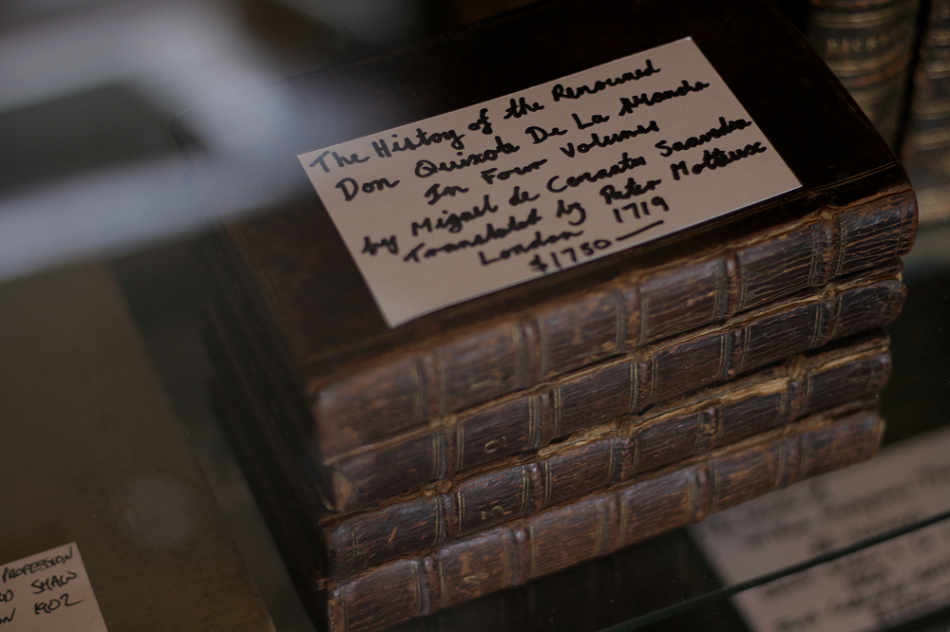 The History of the Renowned
Don Quixote De La Mancha
In Four Volumes
by Miguel de Cervantes Saavedra
Translated by Peter Motteux
London 1719
$1750—
PROFESSION
SHAW
1902
3